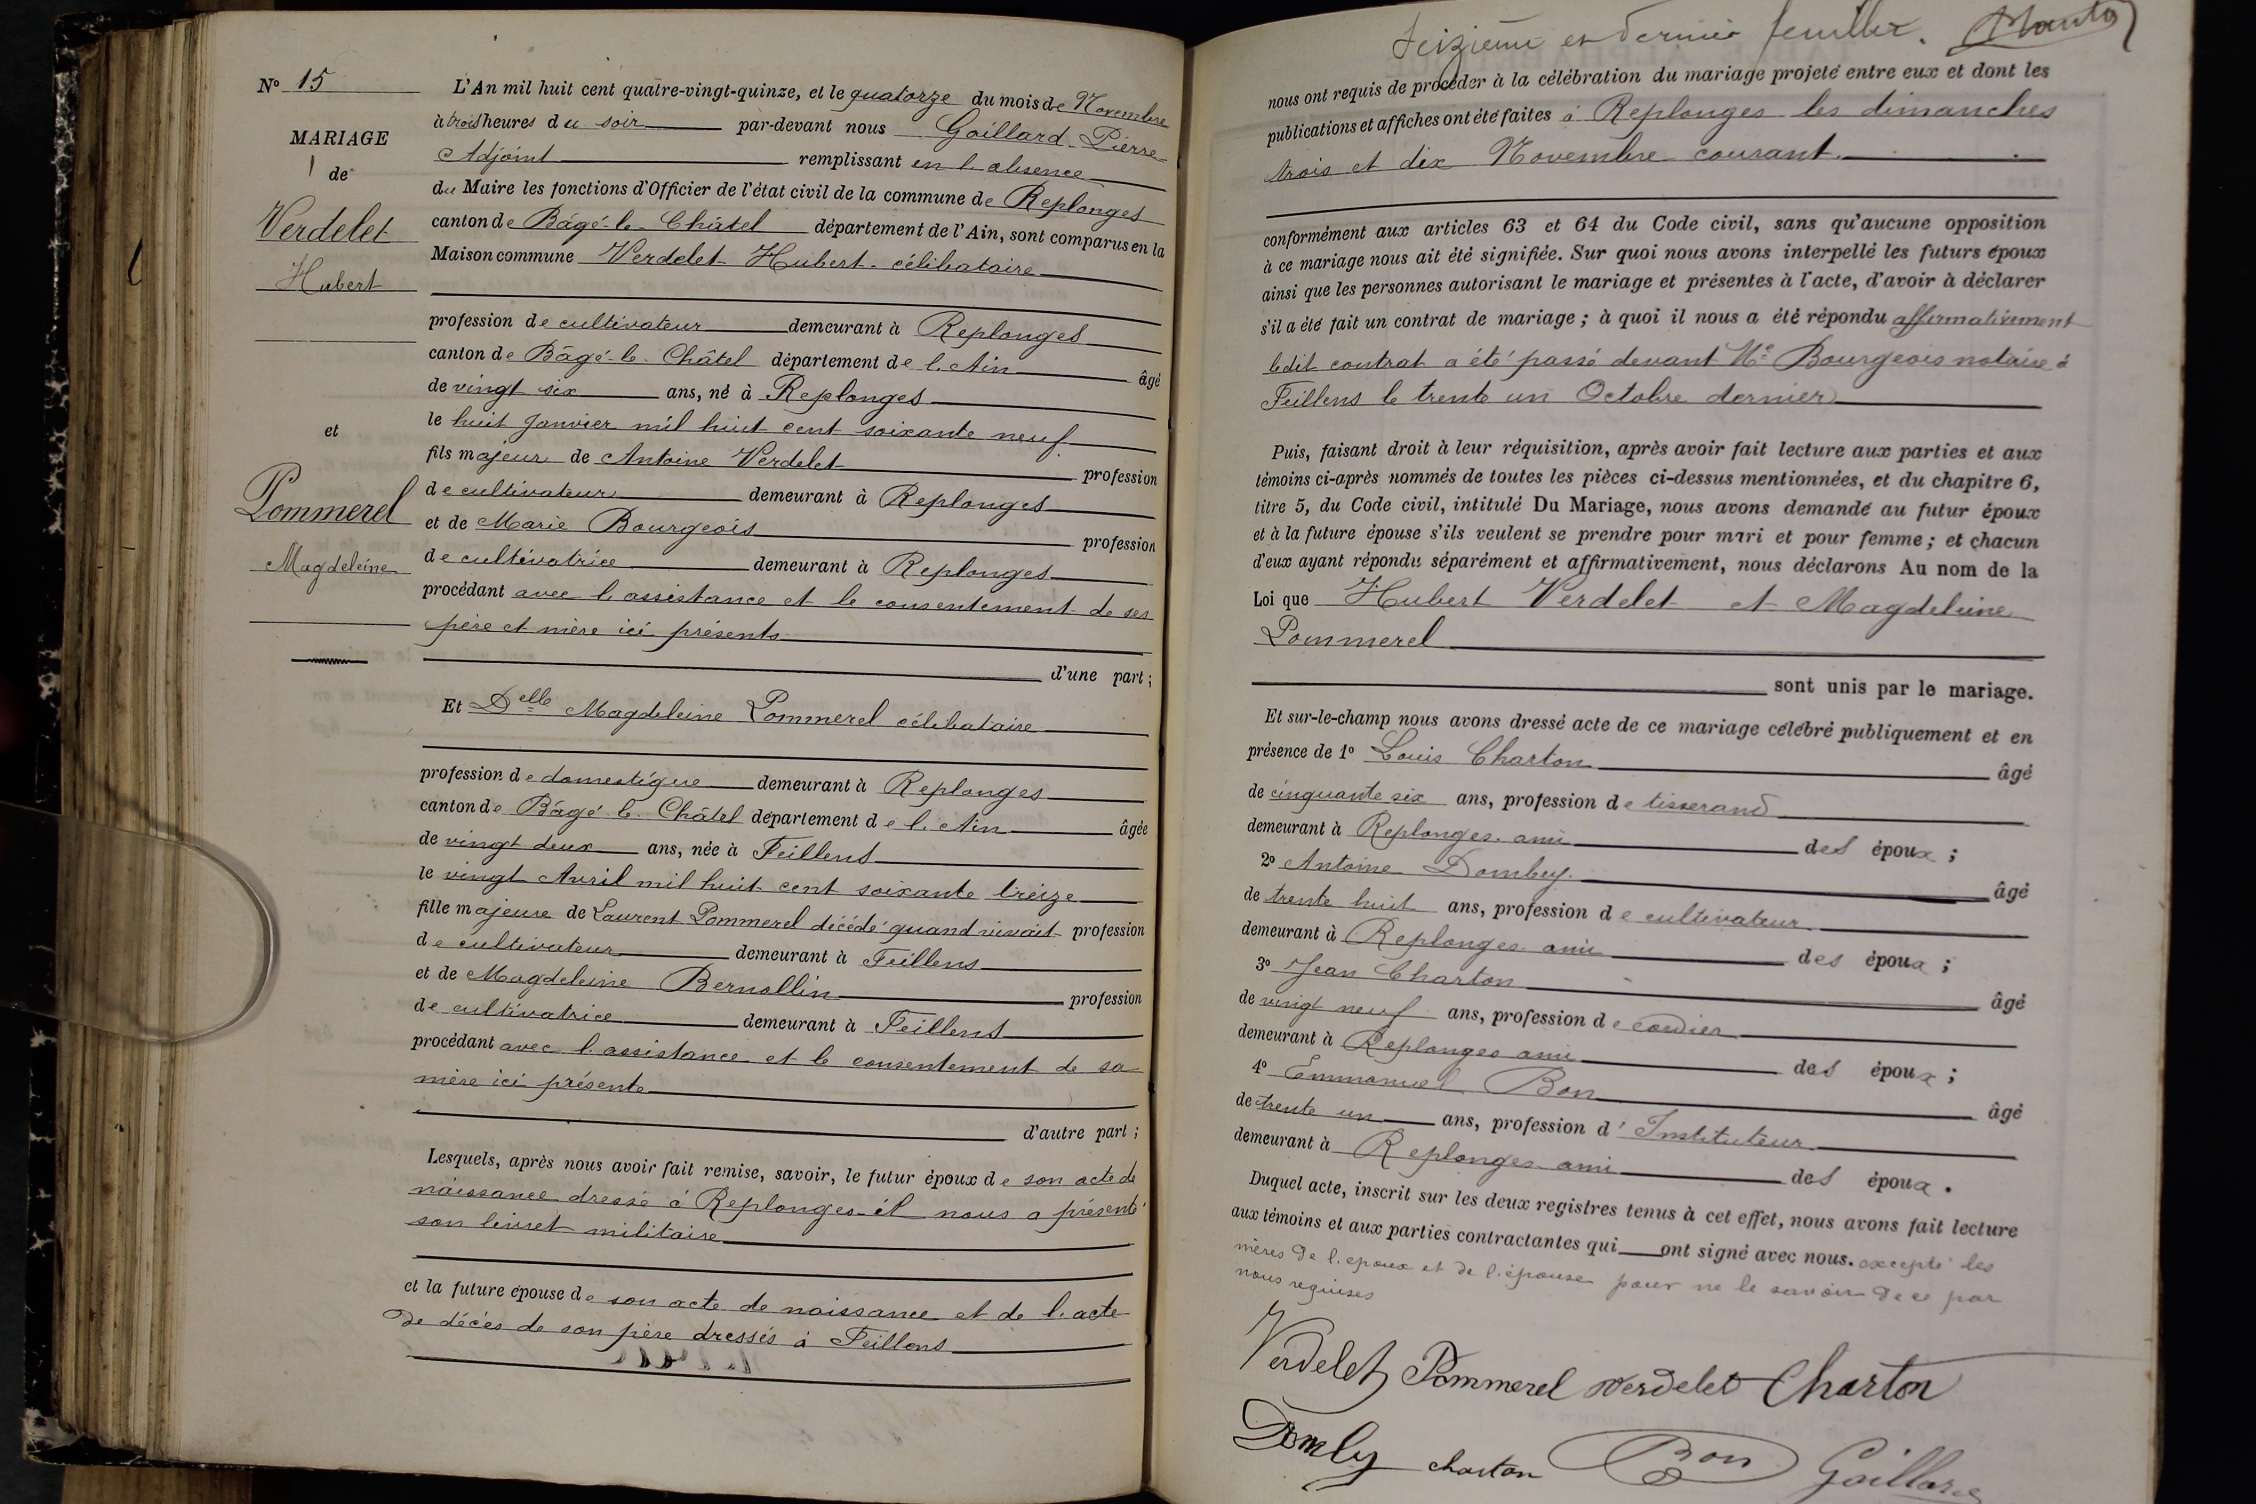 N° 15
MARIAGE
de
Verdelet
Hubert
et
Pommerel
Magdeleine
L'An mil huit cent quatre-vingt-quinze, et le quatorze du mois de Novembre
à trois heures du soir par-devant nous Gaillard Pierre
Adjoint remplissant en l'absence
du Maire les fonctions d'Officier de l'état civil de la commune de Replonges
canton de Bâgé-le-Châtel département de l'Ain, sont comparus en la
Maison commune Verdelet Hubert célibataire
profession de cultivateur demeurant à Replonges
canton de Bâgé-le-Châtel département de l'Ain âgé
de vingt six ans, né à Replonges
le huit janvier mil huit cent soixante neuf
fils majeur de Antoine Verdelet profession
de cultivateur demeurant à Replonges
et de Marie Bourgeois profession
de cultivatrice demeurant à Replonges
procédant avec l'assistance et le consentement de ses
père et mère ici présents
d'une part ;
Et Delle Magdeleine Pommerel célibataire
profession de domestique demeurant à Replonges
canton de Bâgé-le-Châtel département de l'Ain âgée
de vingt deux ans, née à Feillens
le vingt Avril mil huit cent soixante treize
fille majeure de Laurent Pommerel décédé quand vivait profession
de cultivateur demeurant à Feillens
et de Magdeleine Bernollin profession
de cultivatrice demeurant à Feillens
procédant avec l'assistance et le consentement de sa
mère ici présente
d'autre part ;
Lesquels, après nous avoir fait remise, savoir, le futur époux de son acte de
naissance dressé à Replonges il nous a présenté
son livret militaire
et la future épouse de son acte de naissance et de l'acte
de décès de son père dressés à Feillens
Seizième et dernier feuillet.
nous ont requis de procéder à la célébration du mariage projeté entre eux et dont les
publications et affiches ont été faites à Replonges les dimanches
trois et dix Novembre courant.
conformément aux articles 63 et 64 du Code civil, sans qu'aucune opposition
à ce mariage nous ait été signifiée. Sur quoi nous avons interpellé les futurs époux
ainsi que les personnes autorisant le mariage et présentes à l'acte, d'avoir à déclarer
s'il a été fait un contrat de mariage ; à quoi il nous a été répondu affirmativement
ledit contrat a été passé devant Me Bourgeois notaire à
Feillens le trente un Octobre dernier
Puis, faisant droit à leur réquisition, après avoir fait lecture aux parties et aux
témoins ci-après nommés de toutes les pièces ci-dessus mentionnées, et du chapitre 6,
titre 5, du Code civil, intitulé Du Mariage, nous avons demandé au futur époux
et à la future épouse s'ils veulent se prendre pour mari et pour femme ; et chacun
d'eux ayant répondu séparément et affirmativement, nous déclarons Au nom de la
Loi que Hubert Verdelet et Magdeleine
Pommerel
sont unis par le mariage.
Et sur-le-champ nous avons dressé acte de ce mariage célébré publiquement et en
présence de 1° Louis Charton âgé
de cinquante six ans, profession de tisserand
demeurant à Replonges ami des époux ;
2° Antoine Dombey. âgé
de trente huit ans, profession de cultivateur
demeurant à Replonges ami des époux ;
3° Jean Charton âgé
de vingt neuf ans, profession de cordier
demeurant à Replonges ami des époux ;
4° Emmanuel Bon âgé
de trente un ans, profession d'Instituteur
demeurant à Replonges ami des époux.
Duquel acte, inscrit sur les deux registres tenus à cet effet, nous avons fait lecture
aux témoins et aux parties contractantes qui ont signé avec nous. excepté les
mères de l'époux et de l'épouse pour ne le savoir de ce par
nous requises
Verdelet Pommerel Verdelet Charton
Dombey charton Bon Gaillard